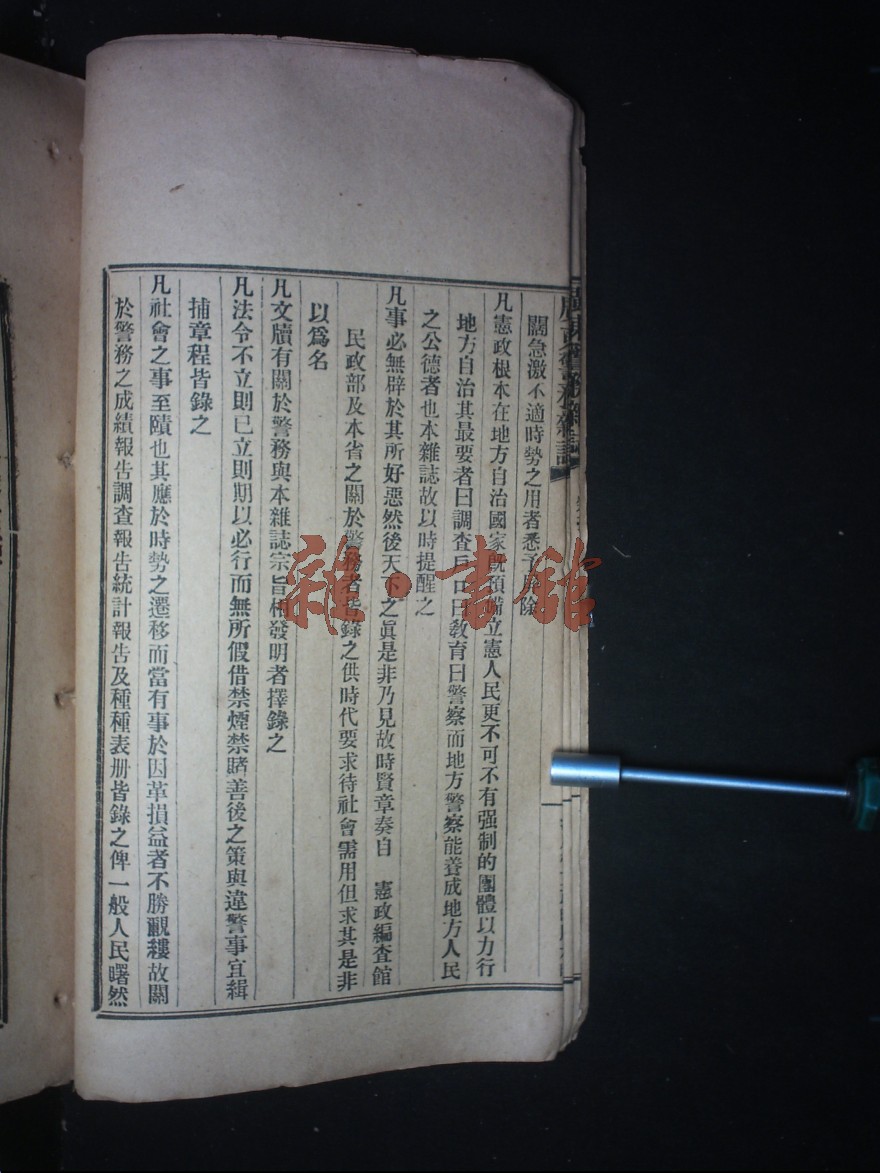 闊急激不適時勢之用者悉予屏除
凡憲政根本在地方自治國家既預備立憲人民更不可不有强制的團體以力行
地方自治其最要者曰調查戶口曰敎育曰警察而地方警察能養成地方人民
之公德者也本雜誌故以時提醒之
凡事必無辟於其所好惡然後天下之眞是非乃見故時賢章奏自　憲政編查館
民政部及本省之關於警務者皆錄之供時代要求待社會需用但求其是非
以爲名
凡文牘有關於警務與本雜誌宗旨相發明者擇錄之
凡法令不立則已立則期以必行而無所假借禁煙禁賭善後之策與違警事宜緝
捕章程皆錄之
凡社會之事至賾也其應於時勢之遷移而當有事於因革損益者不勝覼縷故關
於警務之成績報告調查報告統計報告及種種表册皆錄之俾一般人民曙然
雜·書館